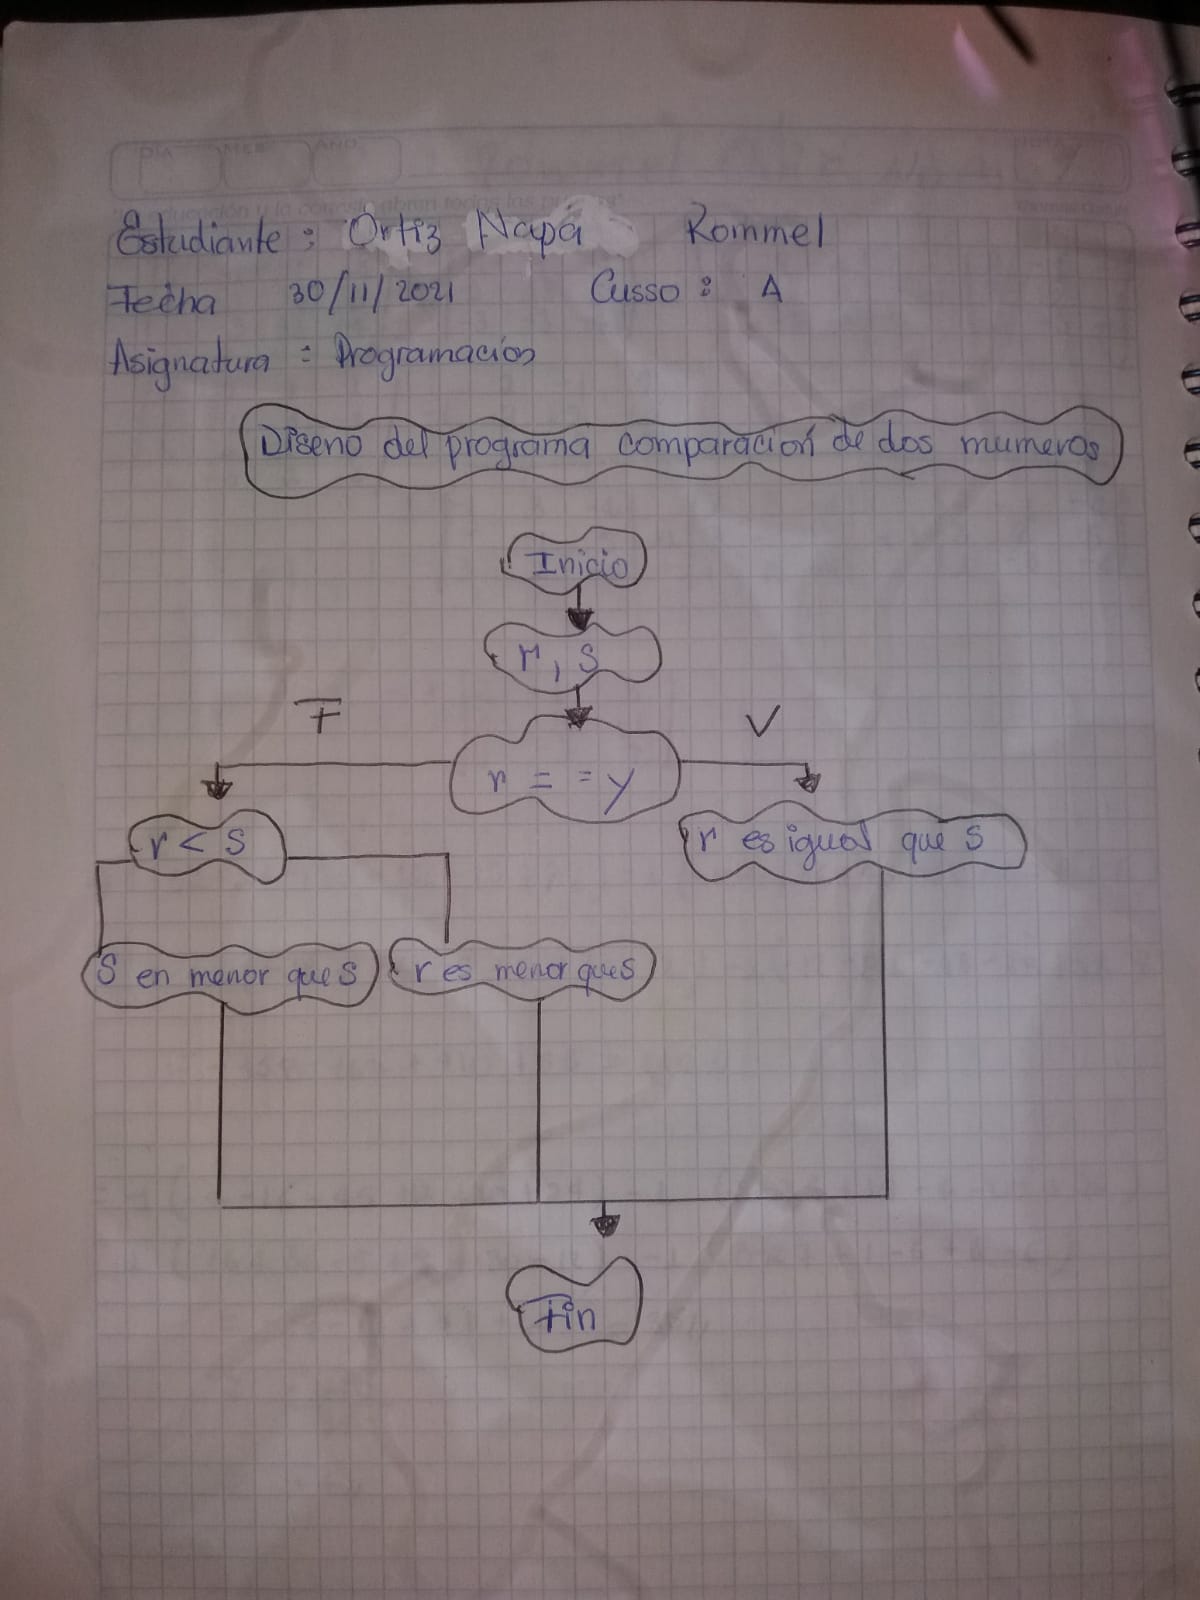 DIA MES AÑO
Estudiante : Ortiz Napa Rommel
Fecha 30/11/2021 Cusso : A
Asignatura : Programacion
Diseno del programa comparacion de dos mumeros
Inicio
r, s
F V
r = = y
r < s r es igual que s
S en menor que s r es menor que s
Fin